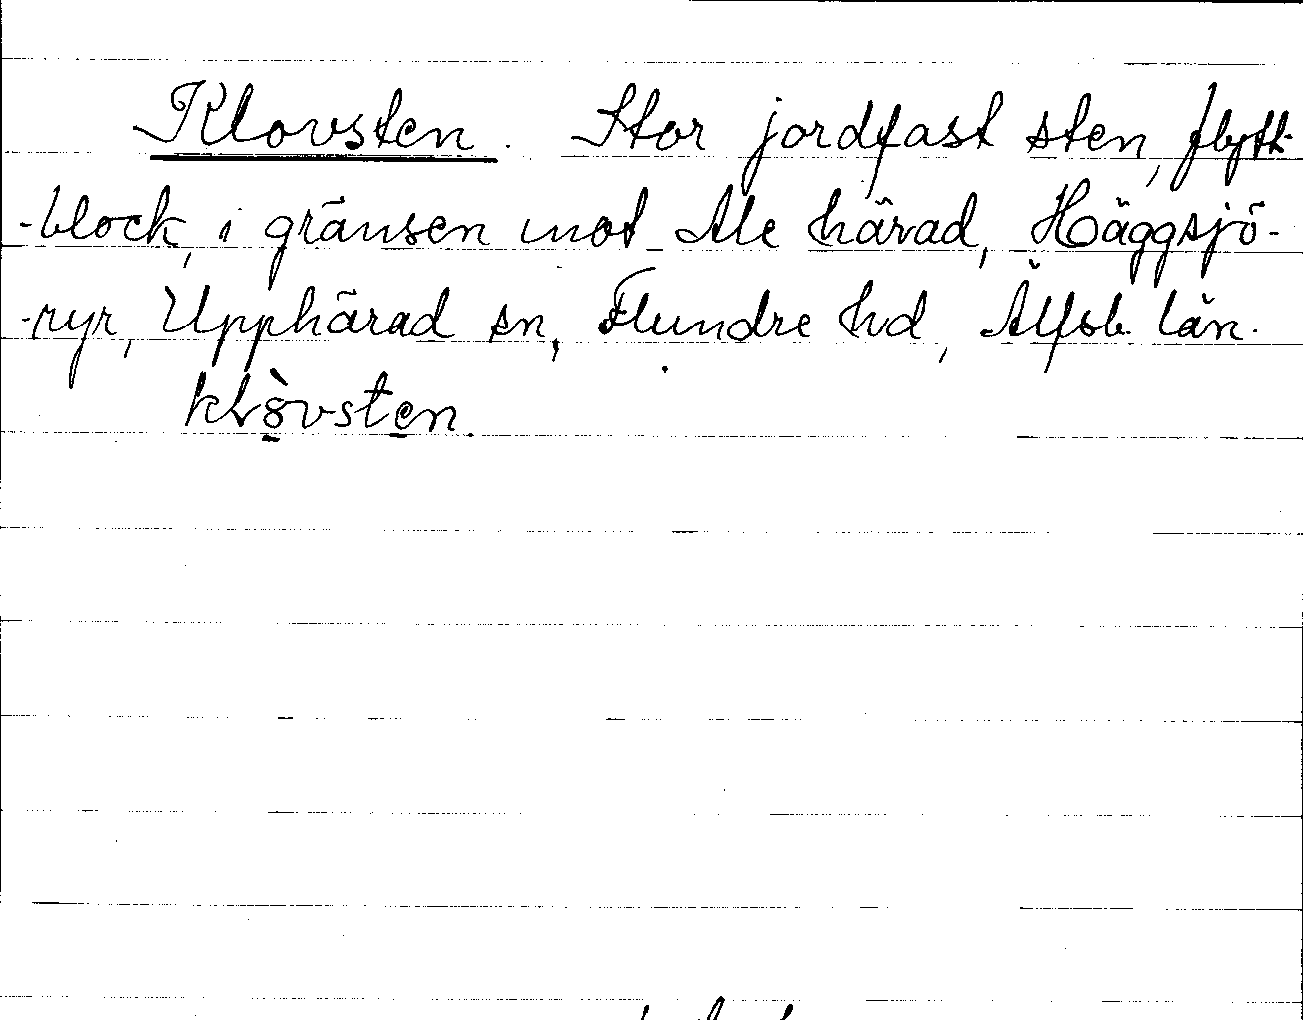 Klovsten. Stor jordfast sten, flytt-
-block, i gränsen mot Ale härad, Häggsjö-
-ryr, Upphärad sn, Flundre hd, Älfsb. län.